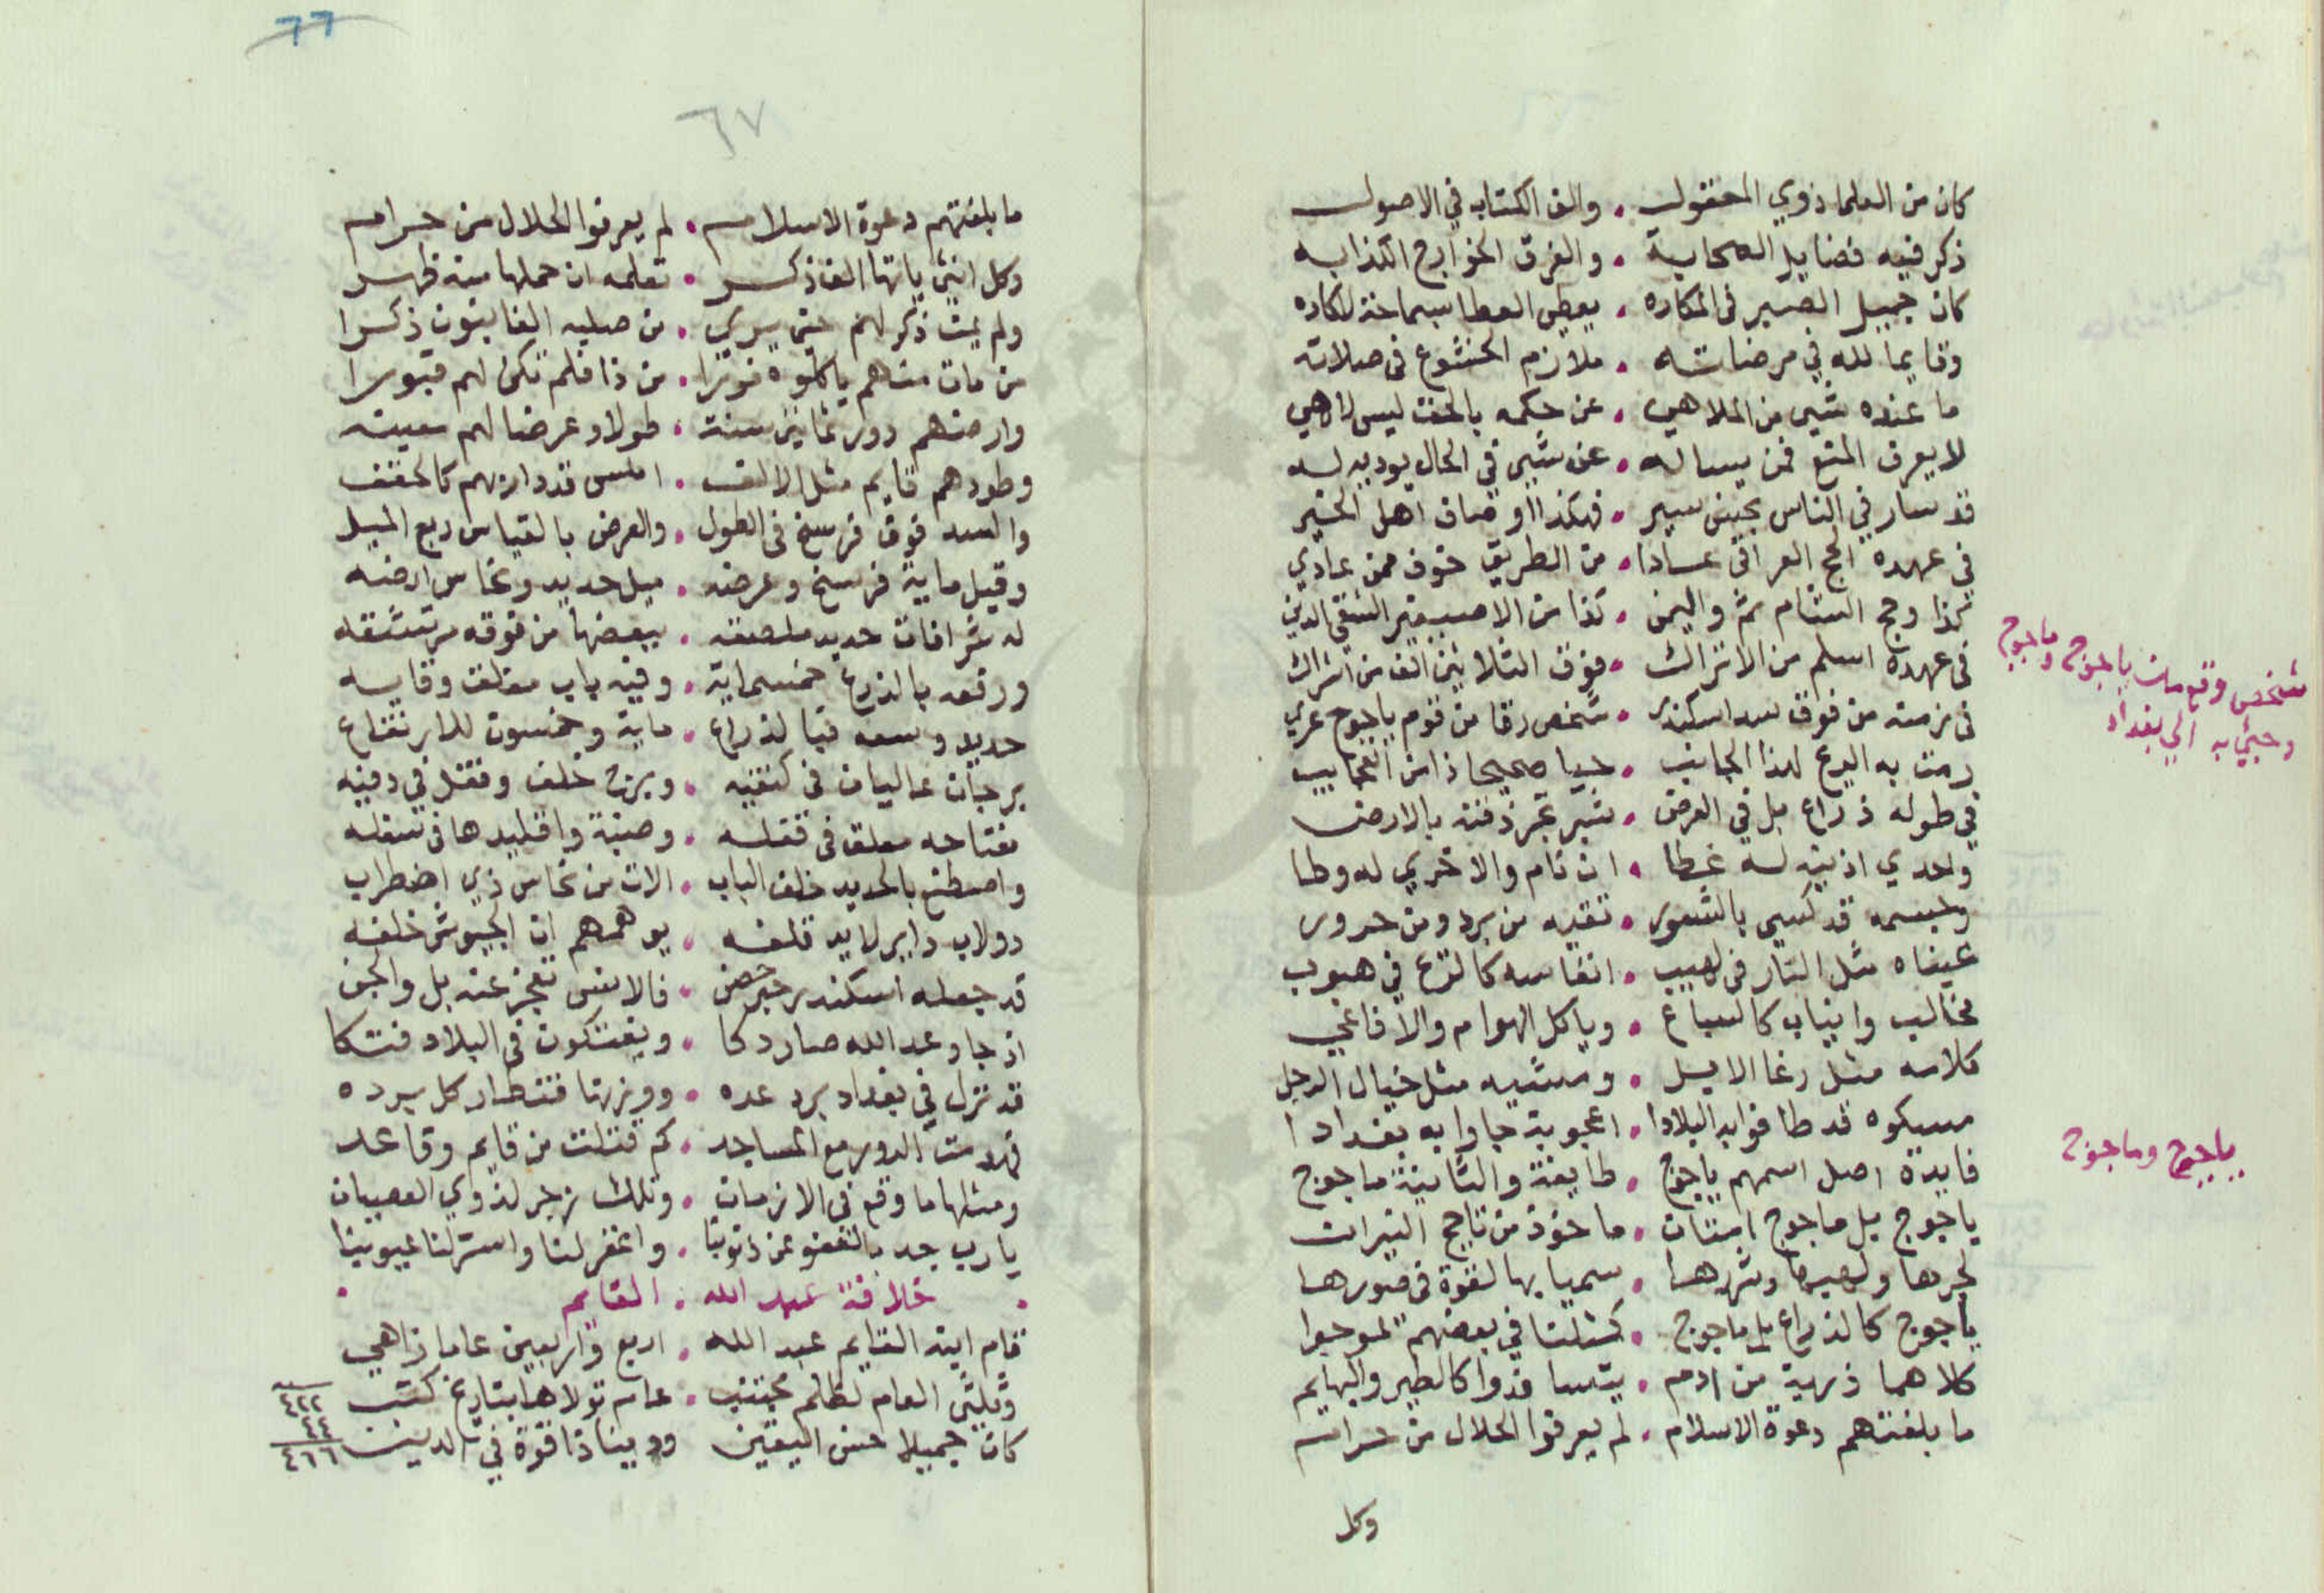 كان من العلما ذوي المعقول • والف الكتاب في الاصول
ذكر فيه فضايل الصحابة • والفرق الخوارج الكذابه
كان جميل الصبر فى المكاره • يعطى العطا سماحة لاكاره
وقايما لله في مرضاته • ملازم الخشوع فى صلاته
ما عنده شي من الملاهي • عن حكمه بالحق ليس لاهي
لا يعرف المنع فمن يساله • عن شي في الحال يوديه له
قد سار في الناس بحسن سير • فهكذا اوصاف اهل الخير
في عهده الحج العراقى • من الطريق خوف ممن عادي
كذا وحج الشام ثم واليمن • كذا من الاصيفر
فى عهده اسلم من الاتراك • فوق الثلاثين الف من اشراك
فى زمنه من فوق سد اسكندر • شخص رقا من قوم ياجوج عري
رمت به الريح لهذا الجانب • حيا صحيحا ذا من العجايب
في طوله ذراع بل في العرض • شبر تجر ذقنه بالارض
واحدي اذنيه له غطا • ان نام والاخري له وطا
وجسمه قد كسي بالشعور • تقيه من برد ومن حرور
عيناه مثل النار فى لهيب • انفاسه كالريح في هبوب
مخالب وانياب كالسباع • وياكل الهوام والافاعي
كلامه مثل رغا الابل • ومشيه مثل خيال الرجل
مسكوه قد طافوا به البلادا • اعجوبة جاوا به بغدادا
فايدة اصل اسمهم ياجوج • طايفة والثانية ماجوج
ياجوج بل ماجوج امتان • ماخوذ من تاجج النيران
لحرها ولهيبها وشرها • سميا بها لقوة فى صورها
ياجوج كالذراع بل ماجوج • كمثلنا في بعضهم
كلاهما ذرية من ادم • يتسافدوا كالطير والبهايم
ما بلغتهم دعوة الاسلام • لم يعرفوا الحلال من حرام
وكل
شخص وقع من ياجوج وماجوج
وجئ به الي بغداد
ياجوج وماجوج
٦٦
٦٧
ما بلغتهم دعوة الاسلام • لم يعرفوا الحلال من حرام
وكل انثى ياتها الف ذكر • تعلمه ان حملها منه ظهر
ولم يمت ذكر لهم حتى يري • من صلبه الفا يكون ذكرا
من مات منهم ياكلوه فورا • من ذا فلم تكن لهم قبورا
وارضهم دور ثمانين سنة • طولا وعرضا لهم
وطودهم قايم مثل الالف • املس قد دار بهم
والسد فوق فرسخ فى الطول • والعرض بالقياس ربع الميل
وقيل ماية فرسخ وعرضه • ميل حديد ونحاس ارضه
له شرافات حديد ملصقه • ببعضها من فوقه
ورفعه بالذرع خمسماية • وفيه باب مغلق وقايه
حديد وسعه • ماية وخمسون للارتفاع
برجان عاليان فى كتفيه • وبرج خلف وقفل في دفيه
مفتاحه معلق فى قفله • واقليدها فى سفله
واصطنع بالحديد خلف الباب • الات من نحاس ذي اضطراب
دولاب داير لا يد تلفه • يوهمهم ان الجيوش خلفه
قد جعله اسكندر خير حصن • فالانس تعجز عنه بل والجن
اذ جا وعد الله صار دكا • ويفتكون فى البلاد فتكا
قد نزل في بغداد برد عده • ووزنها قنطار كل برده
فهدمت الدور مع المساجد • كم قتلت من قايم وقاعد
ومثلها ما وقع فى الازمان • وتلك زجر لذوي العصيان
يا رب جد بالعفو عن ذنوبنا • واغفر لنا واستر لنا عيوبنا
• خلافة عبد الله • القايم •
قام ابنه القايم عبد الله • اربع واربعين عاما زاهي
العام لظلم مجتنب • عام تولاها بتاريخ كتب ٤٢٢
٤٤
كان جميلا حسن اليقين ودينا ذا قوة في الدين ٤٦٦